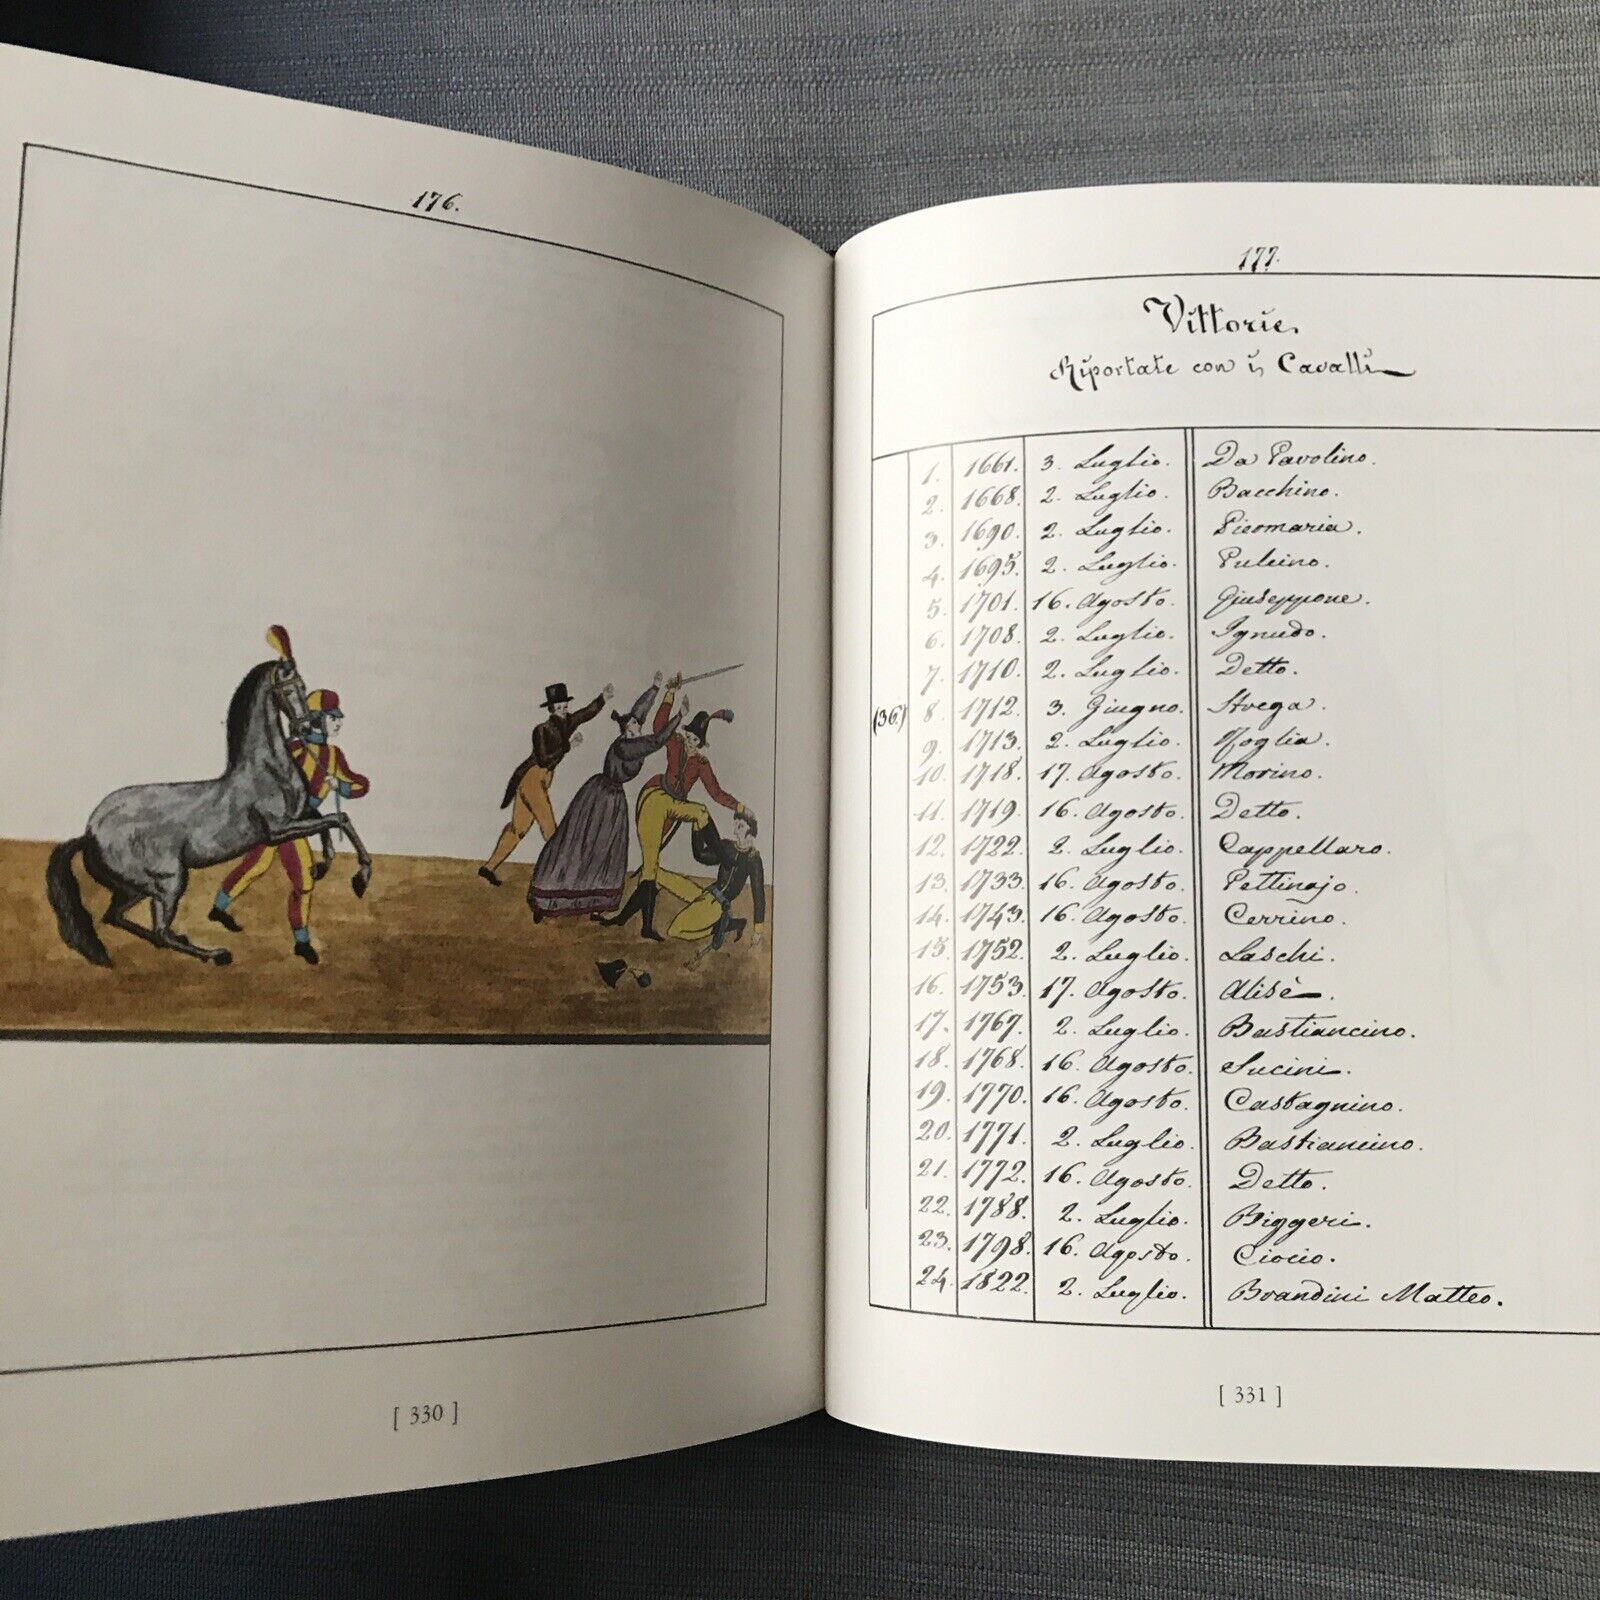 176.
[ 330 ]
177.
Vittorie.
Riportate con i Cavalli
(36.)
1. 1661. 3. Luglio. Da Pavolino.
2. 1668. 2. Luglio. Bacchino.
3. 1690. 2. Luglio. Piermaria.
4. 1695. 2. Luglio. Pulcino.
5. 1701. 16. Agosto. Giuseppone.
6. 1708. 2. Luglio. Ignudo.
7. 1710. 2. Luglio. Detto.
8. 1712. 3. Giugno. Strega.
9. 1713. 2. Luglio.
10. 1718. 17. Agosto. Morino.
11. 1719. 16. Agosto. Detto.
12. 1722. 2. Luglio. Cappellaro.
13. 1733. 16. Agosto. Pettinajo.
14. 1743. 16. Agosto. Cerrino.
15. 1752. 2. Luglio. Laschi.
16. 1753. 17. Agosto. Alisè.
17. 1767. 2. Luglio. Bastiancino.
18. 1768. 16. Agosto. Sucini.
19. 1770. 16. Agosto. Castagnino.
20. 1771. 2. Luglio. Bastiancino.
21. 1772. 16. Agosto. Detto.
22. 1788. 2. Luglio. Biggeri.
23. 1798. 16. Agosto. Ciocio.
24. 1822. 2. Luglio. Brandini Matteo.
[ 331 ]